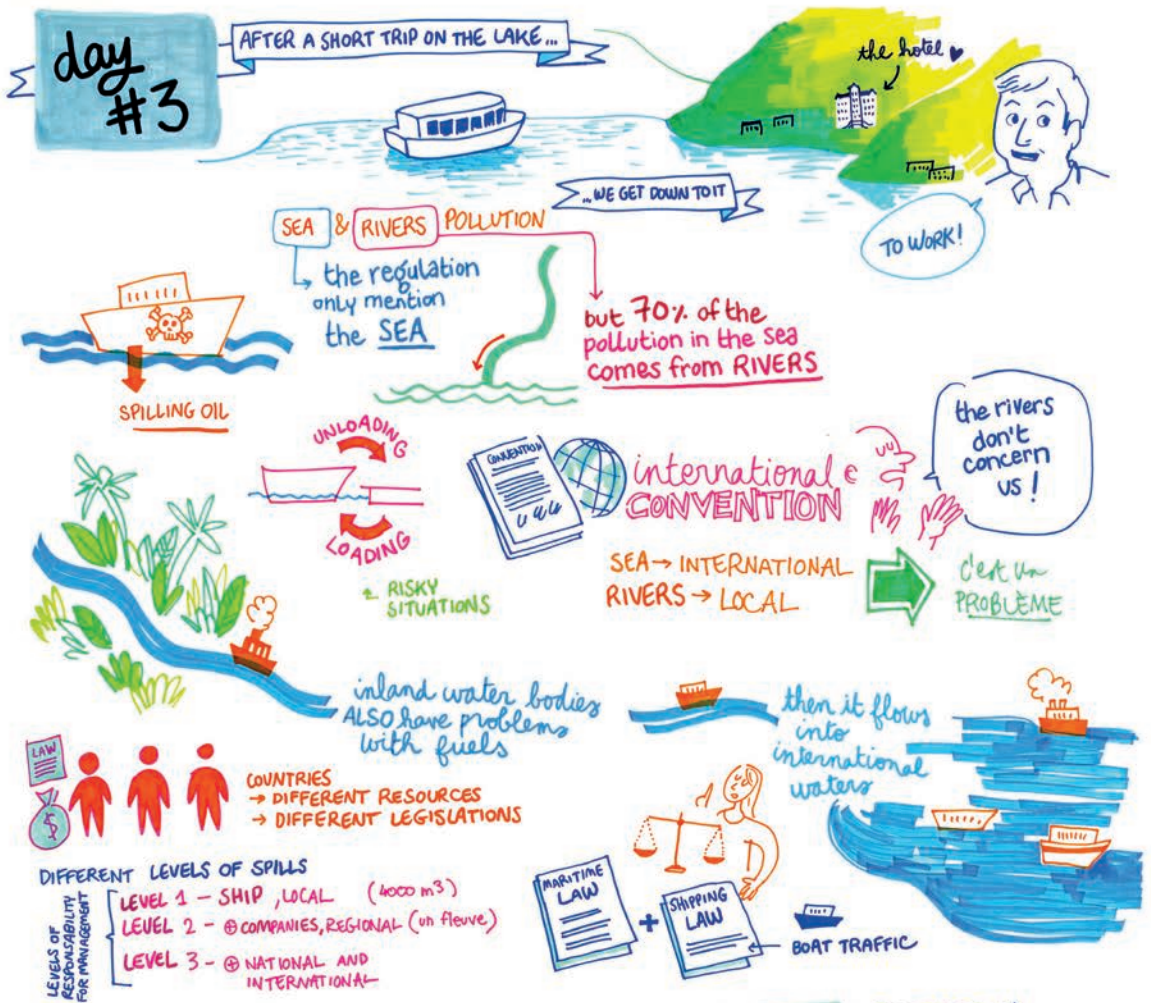 day
#3
AFTER A SHORT TRIP ON THE LAKE...
the hotel
...WE GET DOWN TO IT
TO WORK!
SEA & RIVERS POLLUTION
the regulation
only mention
the SEA
but 70% of the
pollution in the sea
comes from RIVERS
SPILLING OIL
UNLOADING
LOADING
RISKY
SITUATIONS
CONVENTION
international
CONVENTION
the rivers
don't
concern
us!
SEA → INTERNATIONAL
RIVERS → LOCAL
c'est un
PROBLÈME
inland water bodies
ALSO have problems
with fuels
then it flows
into
international
waters
LAW
$
COUNTRIES
→ DIFFERENT RESOURCES
→ DIFFERENT LEGISLATIONS
DIFFERENT LEVELS OF SPILLS
LEVELS OF
RESPONSABILITY
FOR MANAGEMENT
LEVEL 1 - SHIP, LOCAL (4000 m3)
LEVEL 2 - ⊕ COMPANIES, REGIONAL (un fleuve)
LEVEL 3 - ⊕ NATIONAL AND
INTERNATIONAL
MARITIME
LAW
+
SHIPPING
LAW
BOAT TRAFFIC